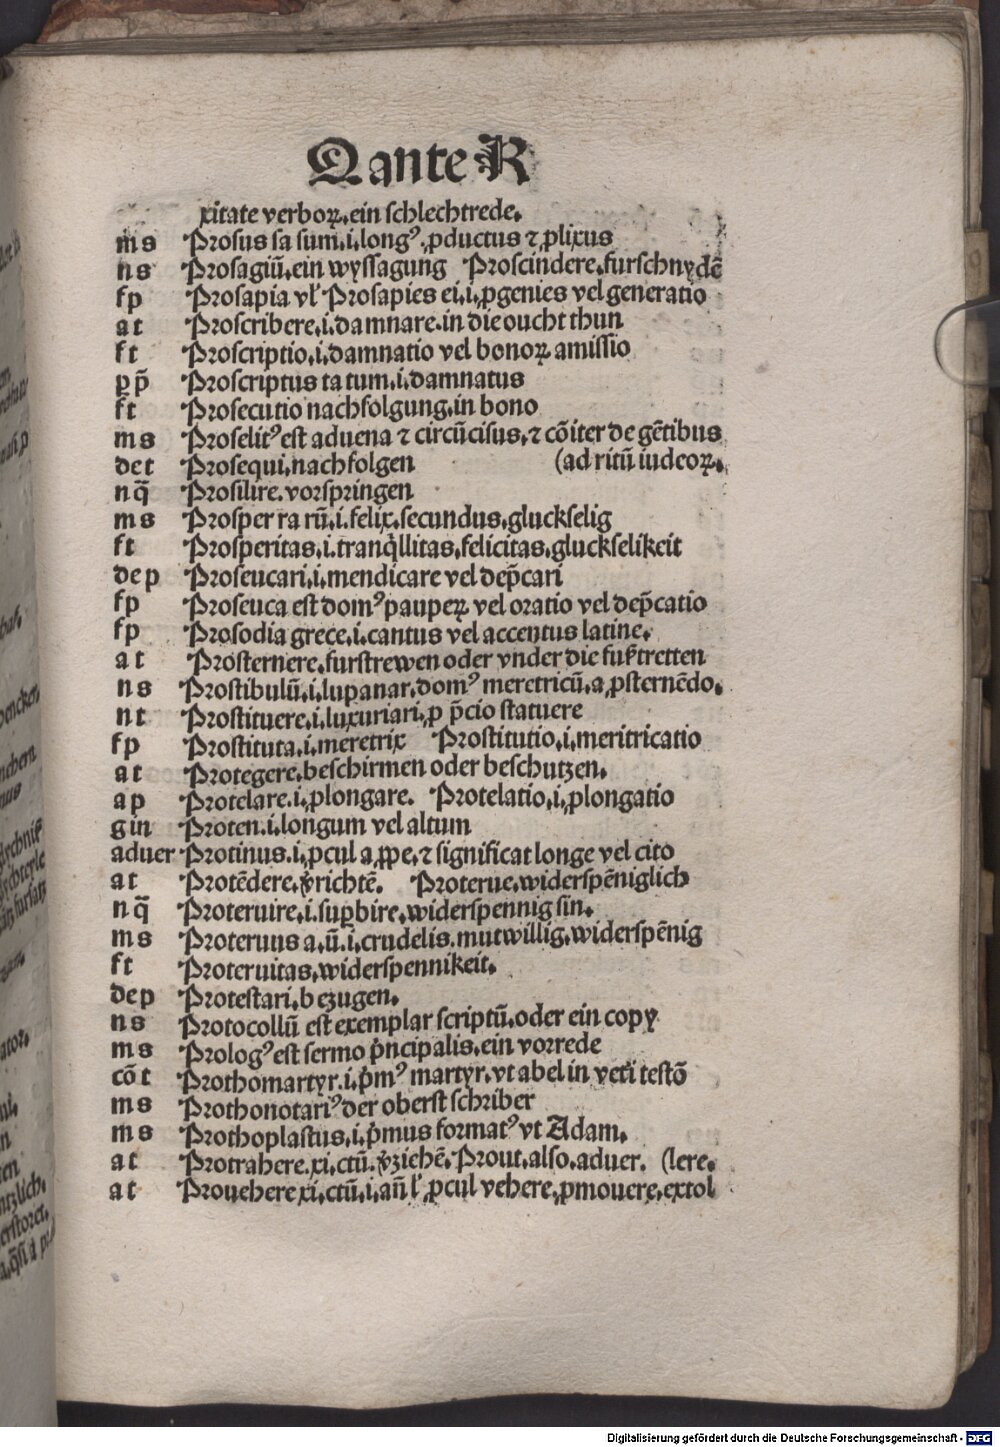 Q ante R
xitate verboꝝ.ein schlechtrede.
ms Prosus sa sum.i.longꝰ.ꝓductus ⁊ ꝓlixus
ns Prosagiū.ein wyssagung Proscindere.furschnydē
fp Prosapia vl' Prosapies ei.i.ꝓgenies vel generatio
at Proscribere.i.damnare.in die oucht thun
ft Proscriptio.i.damnatio vel bonoꝝ amissio
ꝑp̄ Proscriptus ta tum.i.damnatus
ft Prosecutio nachfolgung.in bono
ms Proselitꝰ est aduena ⁊ circūcisus.⁊ cōiter de gētibus
det Prosequi.nachfolgen (ad ritū iudeoꝝ.
nq̄ Prosilire.vorspringen
ms Prosper ra rū.i.felix.secundus.gluckselig
ft Prosperitas.i.tranqͥllitas.felicitas.gluckselikeit
dep Proseucari.i.mendicare vel dep̄cari
fp Proseuca est domꝰ pauperꝝ vel oratio vel dep̄catio
fp Prosodia grece.i.cantus vel accentus latine.
at Prosternere.furstrewen oder vnder die fuß tretten
ns Prostibulū.i.lupanar.domꝰ meretricū.a ꝓsternēdo.
nt Prostituere.i.luxuriari.ꝓ p̄cio statuere
fp Prostituta.i.meretrix Prostitutio.i.meritricatio
at Protegere.beschirmen oder beschutzen.
ap Protelare.i.ꝓlongare. Protelatio.i.ꝓlongatio
gin Proten.i.longum vel altum
aduer Protinus.i.ꝓcul a ꝓpe.⁊ significat longe vel cito
at Protēdere.v̓richtē. Proterue.widerspēniglich
nq̄ Proteruire.i.suꝑbire.widerspennig sin.
ms Proteruus a.ū.i.crudelis.mutwillig.widerspēnig
ft Proteruitas.widerspennikeit.
dep Protestari.bezugen.
ns Protocollū est exemplar scriptū.oder ein copy
ms Prologꝰ est sermo pͥncipalis.ein vorrede
cōt Prothomartyr.i.pͥmꝰ martyr.vt abel in veti testō
ms Prothonotariꝰ der oberst schriber
ms Prothoplastus.i.pͥmus formatꝰ vt Adam.
at Protrahere.xi.ctū.v̓ziehē.Prout.also.aduer. (lere.
at Prouehere xi.ctū.i.an̄ l' ꝓcul vehere.ꝓmouere.extol
Digitalisierung gefördert durch die Deutsche Forschungsgemeinschaft - DFG